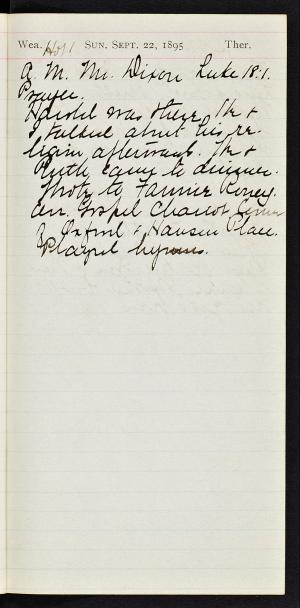 Wea. Hot Sun. Sept. 22, 1895 Ther.
A. M. Mr. Dixon Luke 18:1.
Prayer.
Harold was there. He &
I talked about his re-
ligion afterwards. He &
Ruth came to dinner.
Wrote to Fannie
Gospel Chariot
& Oxford & Hanson Place.
Played hymns.